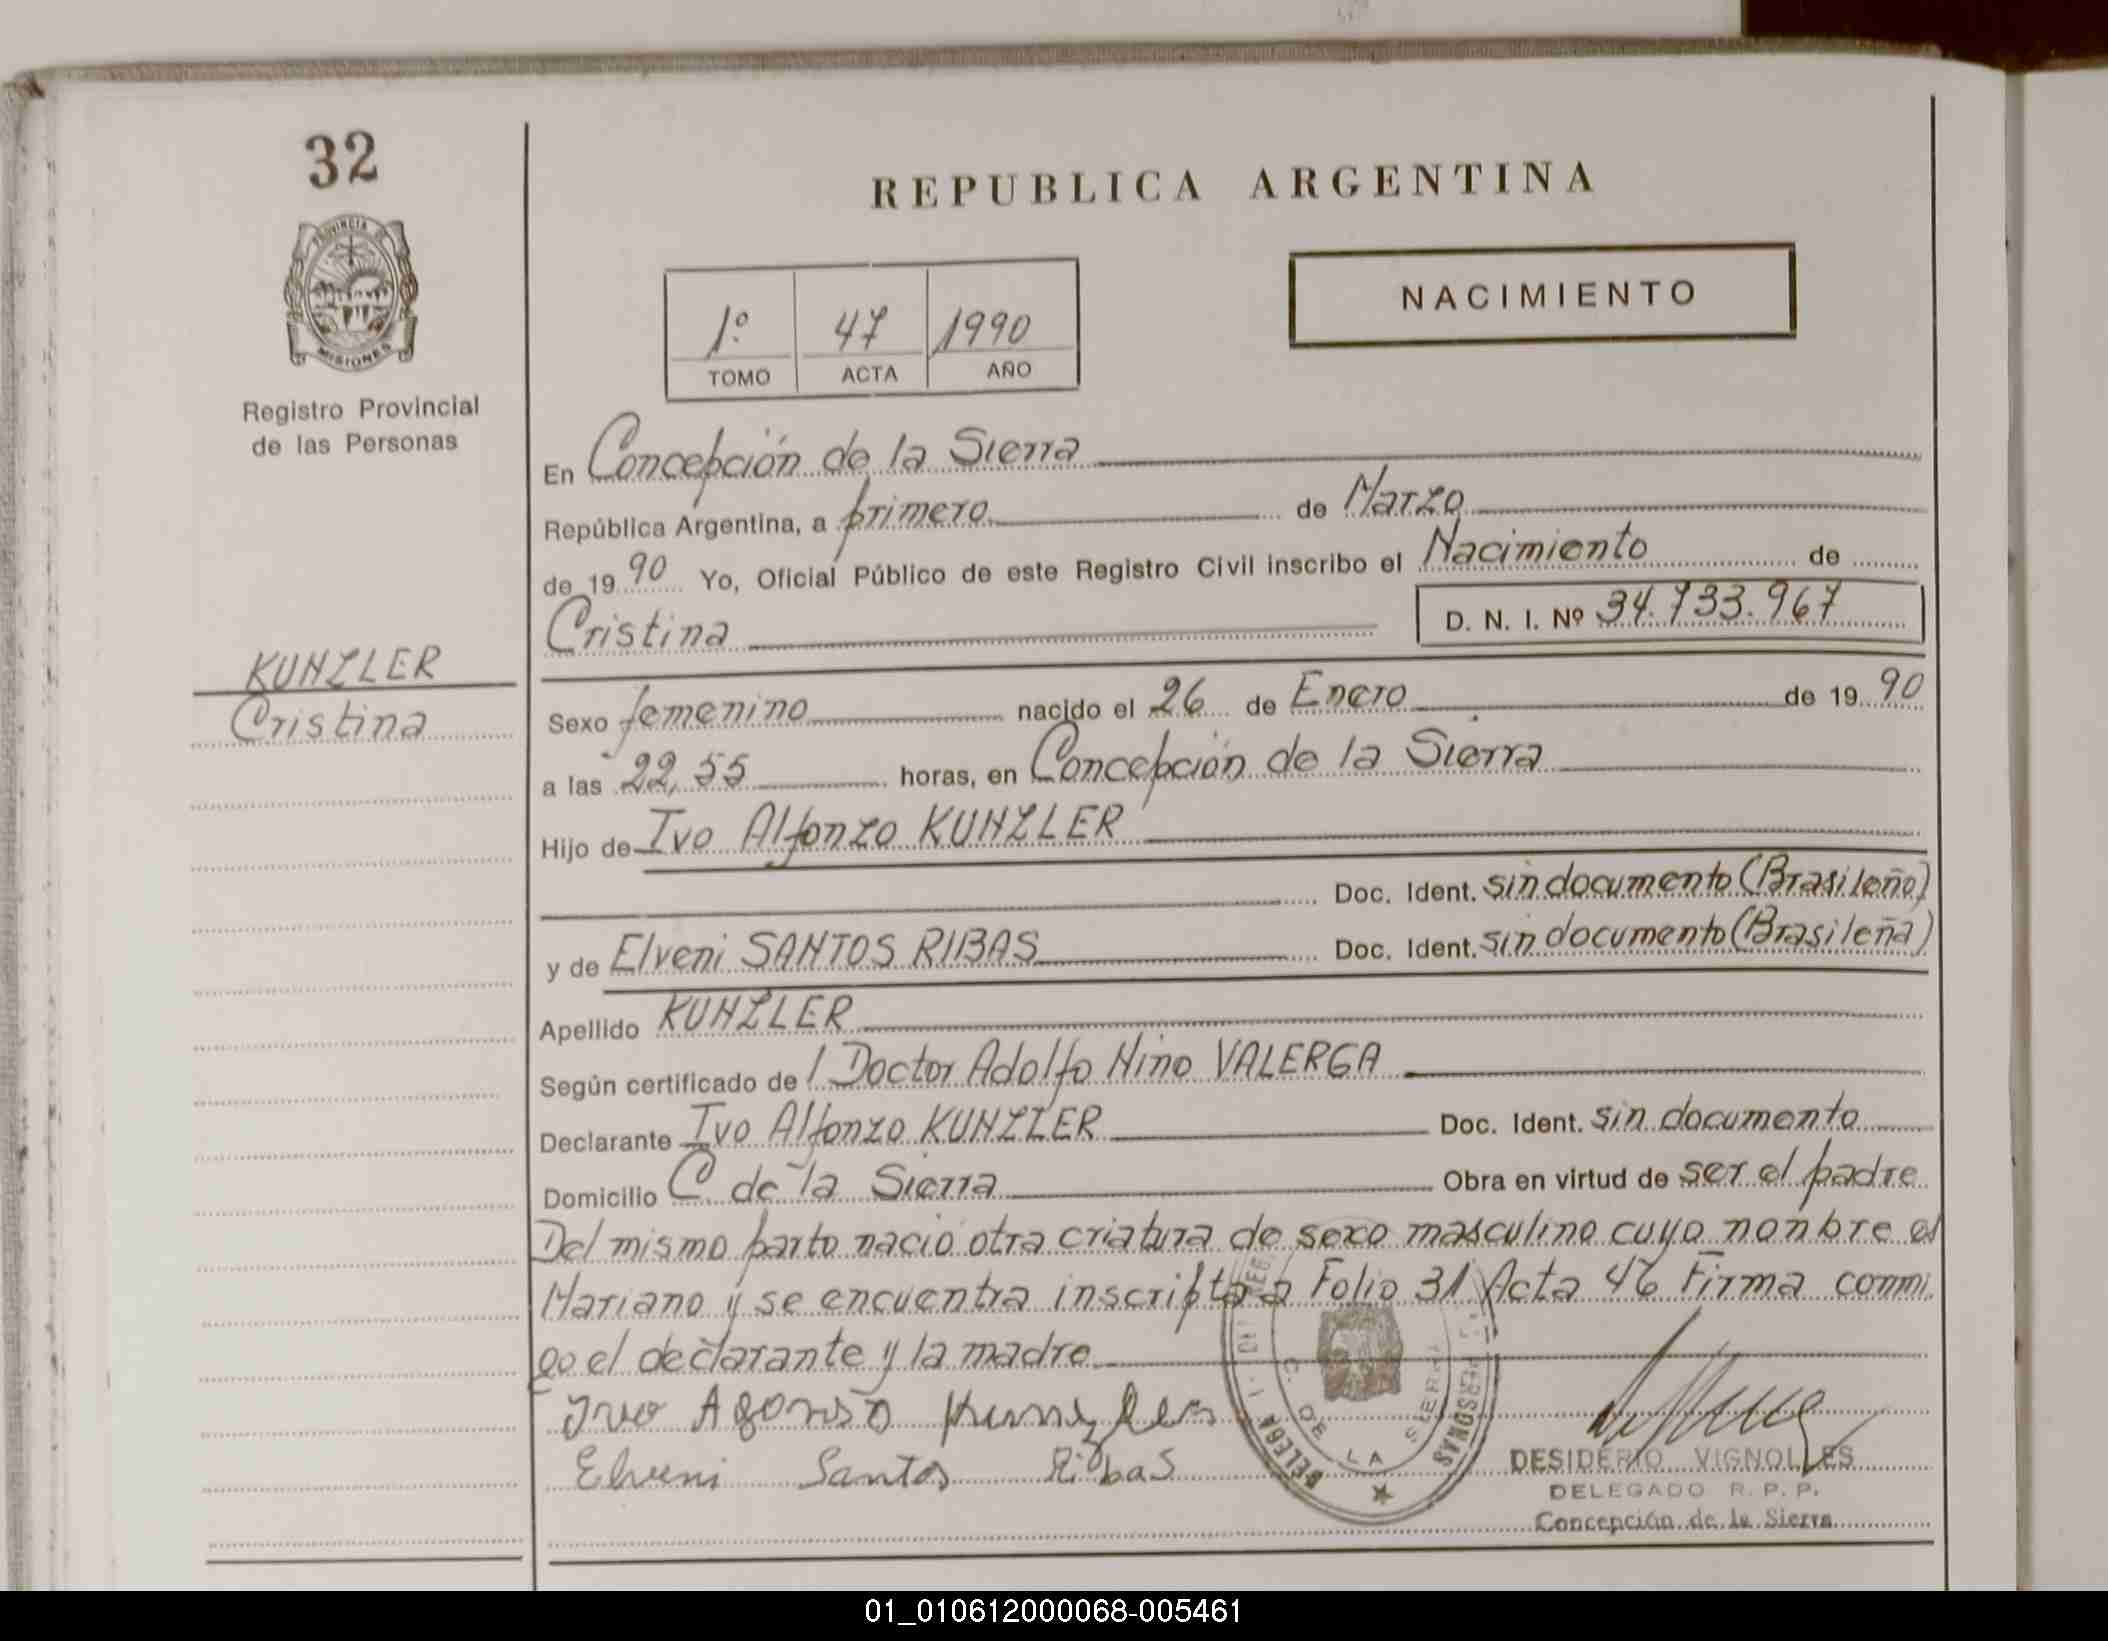 32
PROVINCIA DE
MISIONES
Registro Provincial
de las Personas
KUNZLER
Cristina
REPUBLICA ARGENTINA
1º 47 1990
TOMO ACTA AÑO
NACIMIENTO
En Concepción de la Sierra
República Argentina, a primero de Marzo
de 1990 Yo, Oficial Público de este Registro Civil inscribo el Nacimiento de
Cristina D. N. I. Nº 34.733.967
Sexo femenino nacido el 26 de Enero de 1990
a las 22,55 horas, en Concepción de la Sierra
Hijo de Ivo Alfonzo KUNZLER
Doc. Ident. sin documento (Brasileño)
y de Elveni SANTOS RIBAS Doc. Ident. sin documento (Brasileña)
Apellido KUNZLER
Según certificado de l Doctor Adolfo Nino VALERGA
Declarante Ivo Alfonzo KUNZLER Doc. Ident. sin documento
Domicilio C de la Sierra Obra en virtud de ser el padre
Del mismo parto nació otra criatura de sexo masculino cuyo nonbre es
Mariano y se encuentra inscripta a Folio 31 Acta 46 Firma conmi
go el declarante y la madre
Ivo Afonso Kunzler
Elveni Santos Ribas
C. DE LA SIERRA
PERSONAS
DESIDERIO VIGNOLLES
DELEGADO R. P. P.
Concepción de la Sierra
01_010612000068-005461